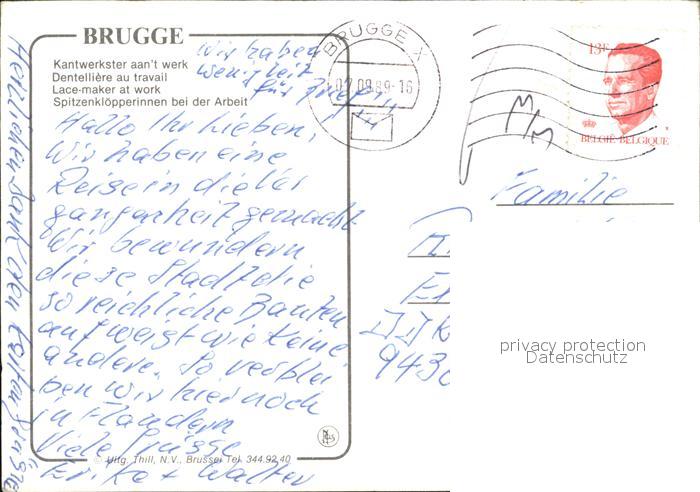 BRUGGE
Kantwerkster aan't werk
Dentellière au travail
Lace-maker at work
Spitzenklöpperinnen bei der Arbeit
Wir haben
wenig Zeit
für
BRUGGE X
09 89-16
13F
BELGIË-BELGIQUE
Hallo Ihr Lieben!
Wir haben eine
Reise in die Ver
gangenheit gemacht
Wir bewundern
diese Stadt die
so reichliche Bauten
aufweist wie keine
andere. So verblei
ben wir hier noch
in Flandern
Viele Grüsse
Erika + Walter
Herzlichen Dank den Kartengrüße
Uitg. Thill, N.V., Brussel Tel. 344.92.40
Familie
943
privacy protection
Datenschutz